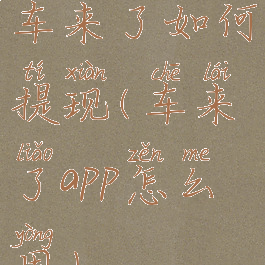 车来了如何
tí xiàn chē lái
提现(车来
liǎo zěn me
了app怎么
yòng
用)